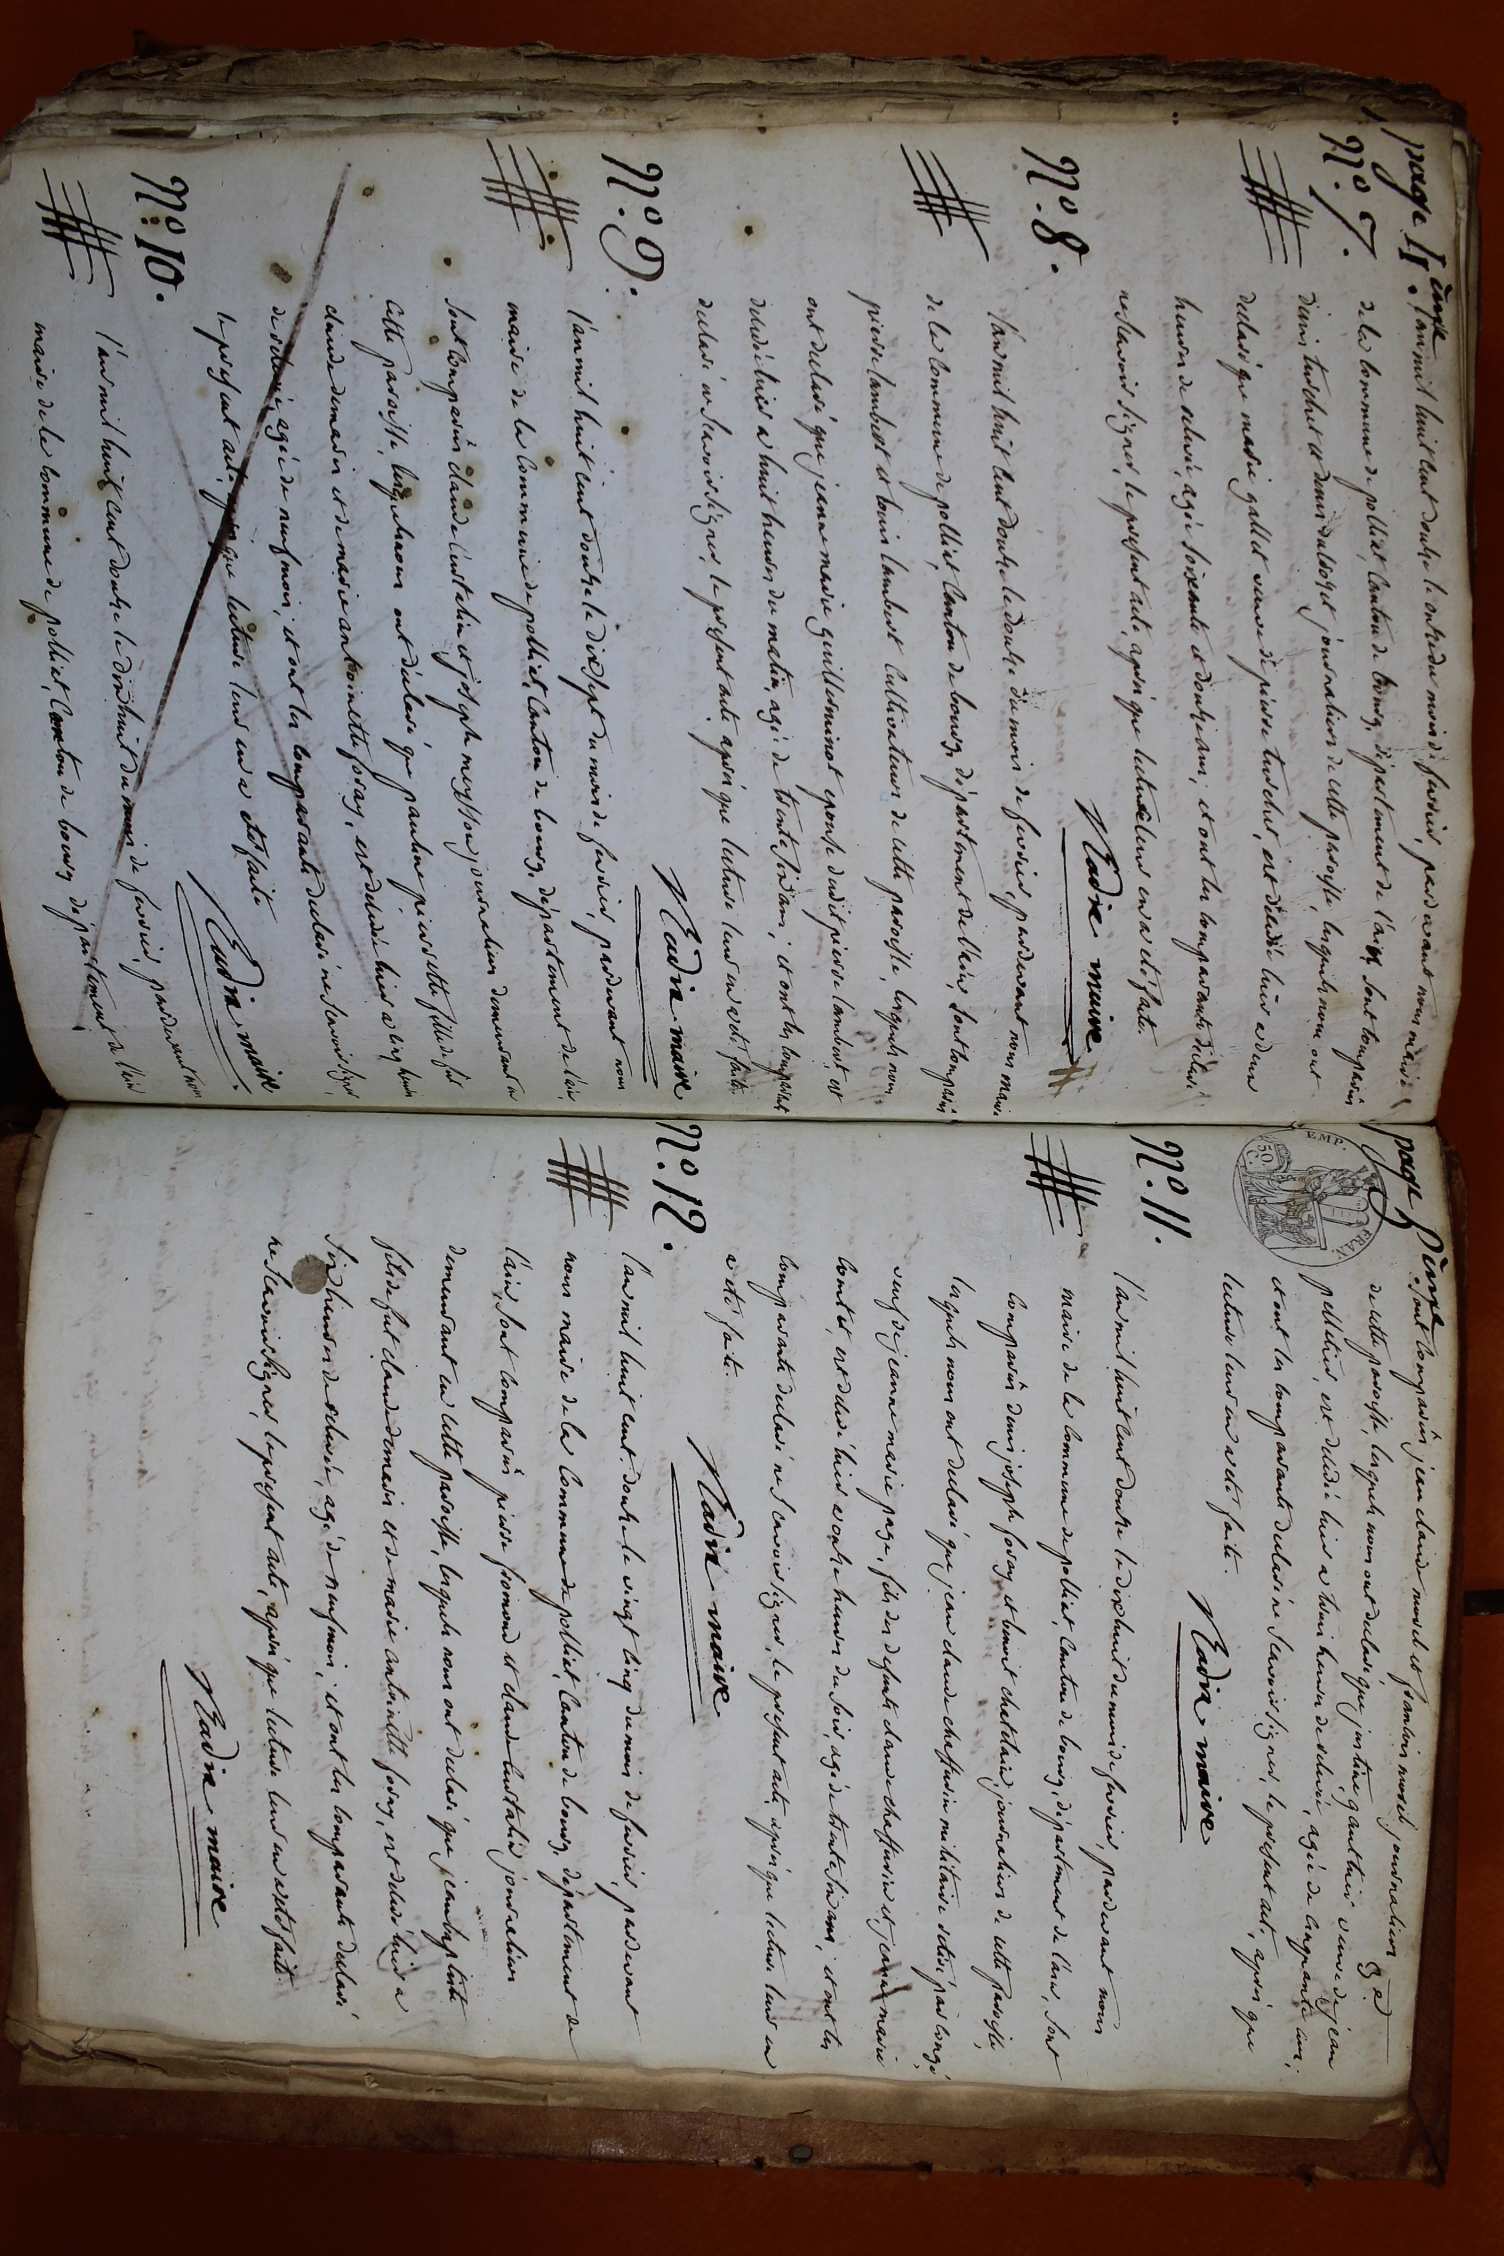 page 4.ème
N.º 7.
l'an mil huit cent douze le onze du mois de fevrier, pardevant nous maire
de la commune de polliat, canton de bourg, département de l'ain, sont comparus
denis tuechet et denis journaliers de cette paroisse, lesquels nous ont
declaré que marie gallet veuve de pierre tuechet, est décédée hier a deux
heures de relevée, agée soixante et douze ans, et ont les comparants declaré
ne scavoir signer, le present acte, après que lecture leur en a été faite.
Nadre maire
N.º 8.
l'an mil huit cent douze le douze du mois de fevrier, pardevant nous maire
de la commune de polliat, canton de bourg, département de l'ain, sont comparus
pierre lambert et louis lambert cultivateurs de cette paroisse, lesquels nous
ont declaré que jeane marie guilleminot epouse dudit pierre lambert, est
décédée hier a huit heures du matin, agé de trente six ans, et ont les comparant
declaré ne scavoir signer, le present acte après que lecture leur en a été faite.
Nadre maire
N.º 9.
l'an mil huit cent douze le dix sept du mois de fevrier, pardevant nous
maire de la commune de polliat, canton de bourg, département de l'ain,
sont comparus claude curtelin et joseph meysson journaliers demeurant en
cette paroisse, lesquels nous ont déclaré que pauline pierrette fille de fut
claude demarin et de marie antoinette foray, est décédée hier a
de relevée, agée de neuf mois, et ont les comparants declaré ne scavoir signer
le present acte, après que lecture leur en a été faite
Nadre maire
N.º 10.
l'an mil huit cent douze le dix huit du mois de fevrier, pardevant nous
maire de la commune de polliat, canton de bourg, département de l'ain
page 5.ème
EMP. FRAN.
50 C.
sont comparus jean claude morel et francois morel, journaliers
de cette paroisse, lesquels nous ont declaré que justine gauthier veuve de jean
pelletier, est décédée hier a trois heures de relevée, agée de cinquante ans,
et ont les comparants declaré ne scavoir signer, le present acte, après que
lecture leur en a été faite.
Nadre maire
N.º 11.
l'an mil huit cent douze le dix huit du mois de fevrier, pardevant nous
maire de la commune de polliat, canton de bourg, département de l'ain, sont
comparus denis joseph foray et benoit chatelain, journaliers de cette paroisse,
lesquels nous ont declaré que jean claude chaffurin militaire retiré par congé,
veuf de jeanne marie page, fils des defunts claude chaffurin et jeane marie
comtet, est décédé hier a onze heures du soir, agé de trente six ans, et ont les
comparants declaré ne scavoir signer, le present acte, après que lecture leur en
a été faite.
Nadre maire
N.º 12.
l'an mil huit cent douze le vingt cinq du mois de fevrier, pardevant
nous maire de la commune de polliat, canton de bourg, département de
l'ain, sont comparus pierre fromond et claude curtalin journaliers
demeurant en cette paroisse, lesquels nous ont declaré que jean baptiste
fils de fut claude demarin et de marie antoinette foray, est décédé hier a
six heures de relevée, agé de neuf mois, et ont les comparants declaré
ne scavoir signer, le present acte, après que lecture leur en a été faite.
Nadre maire